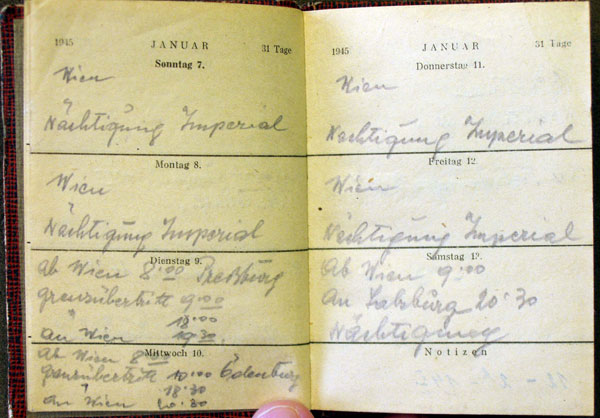 1945 JANUAR 31 Tage
Sonntag 7.
Wien
Nächtigung Imperial
Montag 8.
Wien
Nächtigung Imperial
Dienstag 9.
Ab Wien 8:00 Preßburg
Grenzübertritt 9:00
" 18:00
An Wien 19:30
Mittwoch 10.
Ab Wien 8:00
Grenzübertritt 10:00 Ödenburg
" 18:30
An Wien 20:30
1945 JANUAR 31 Tage
Donnerstag 11.
Wien
Nächtigung Imperial
Freitag 12.
Wien
Nächtigung Imperial
Samstag 13.
Ab Wien 9:00
An Salzburg 20:30
Nächtigung
Notizen